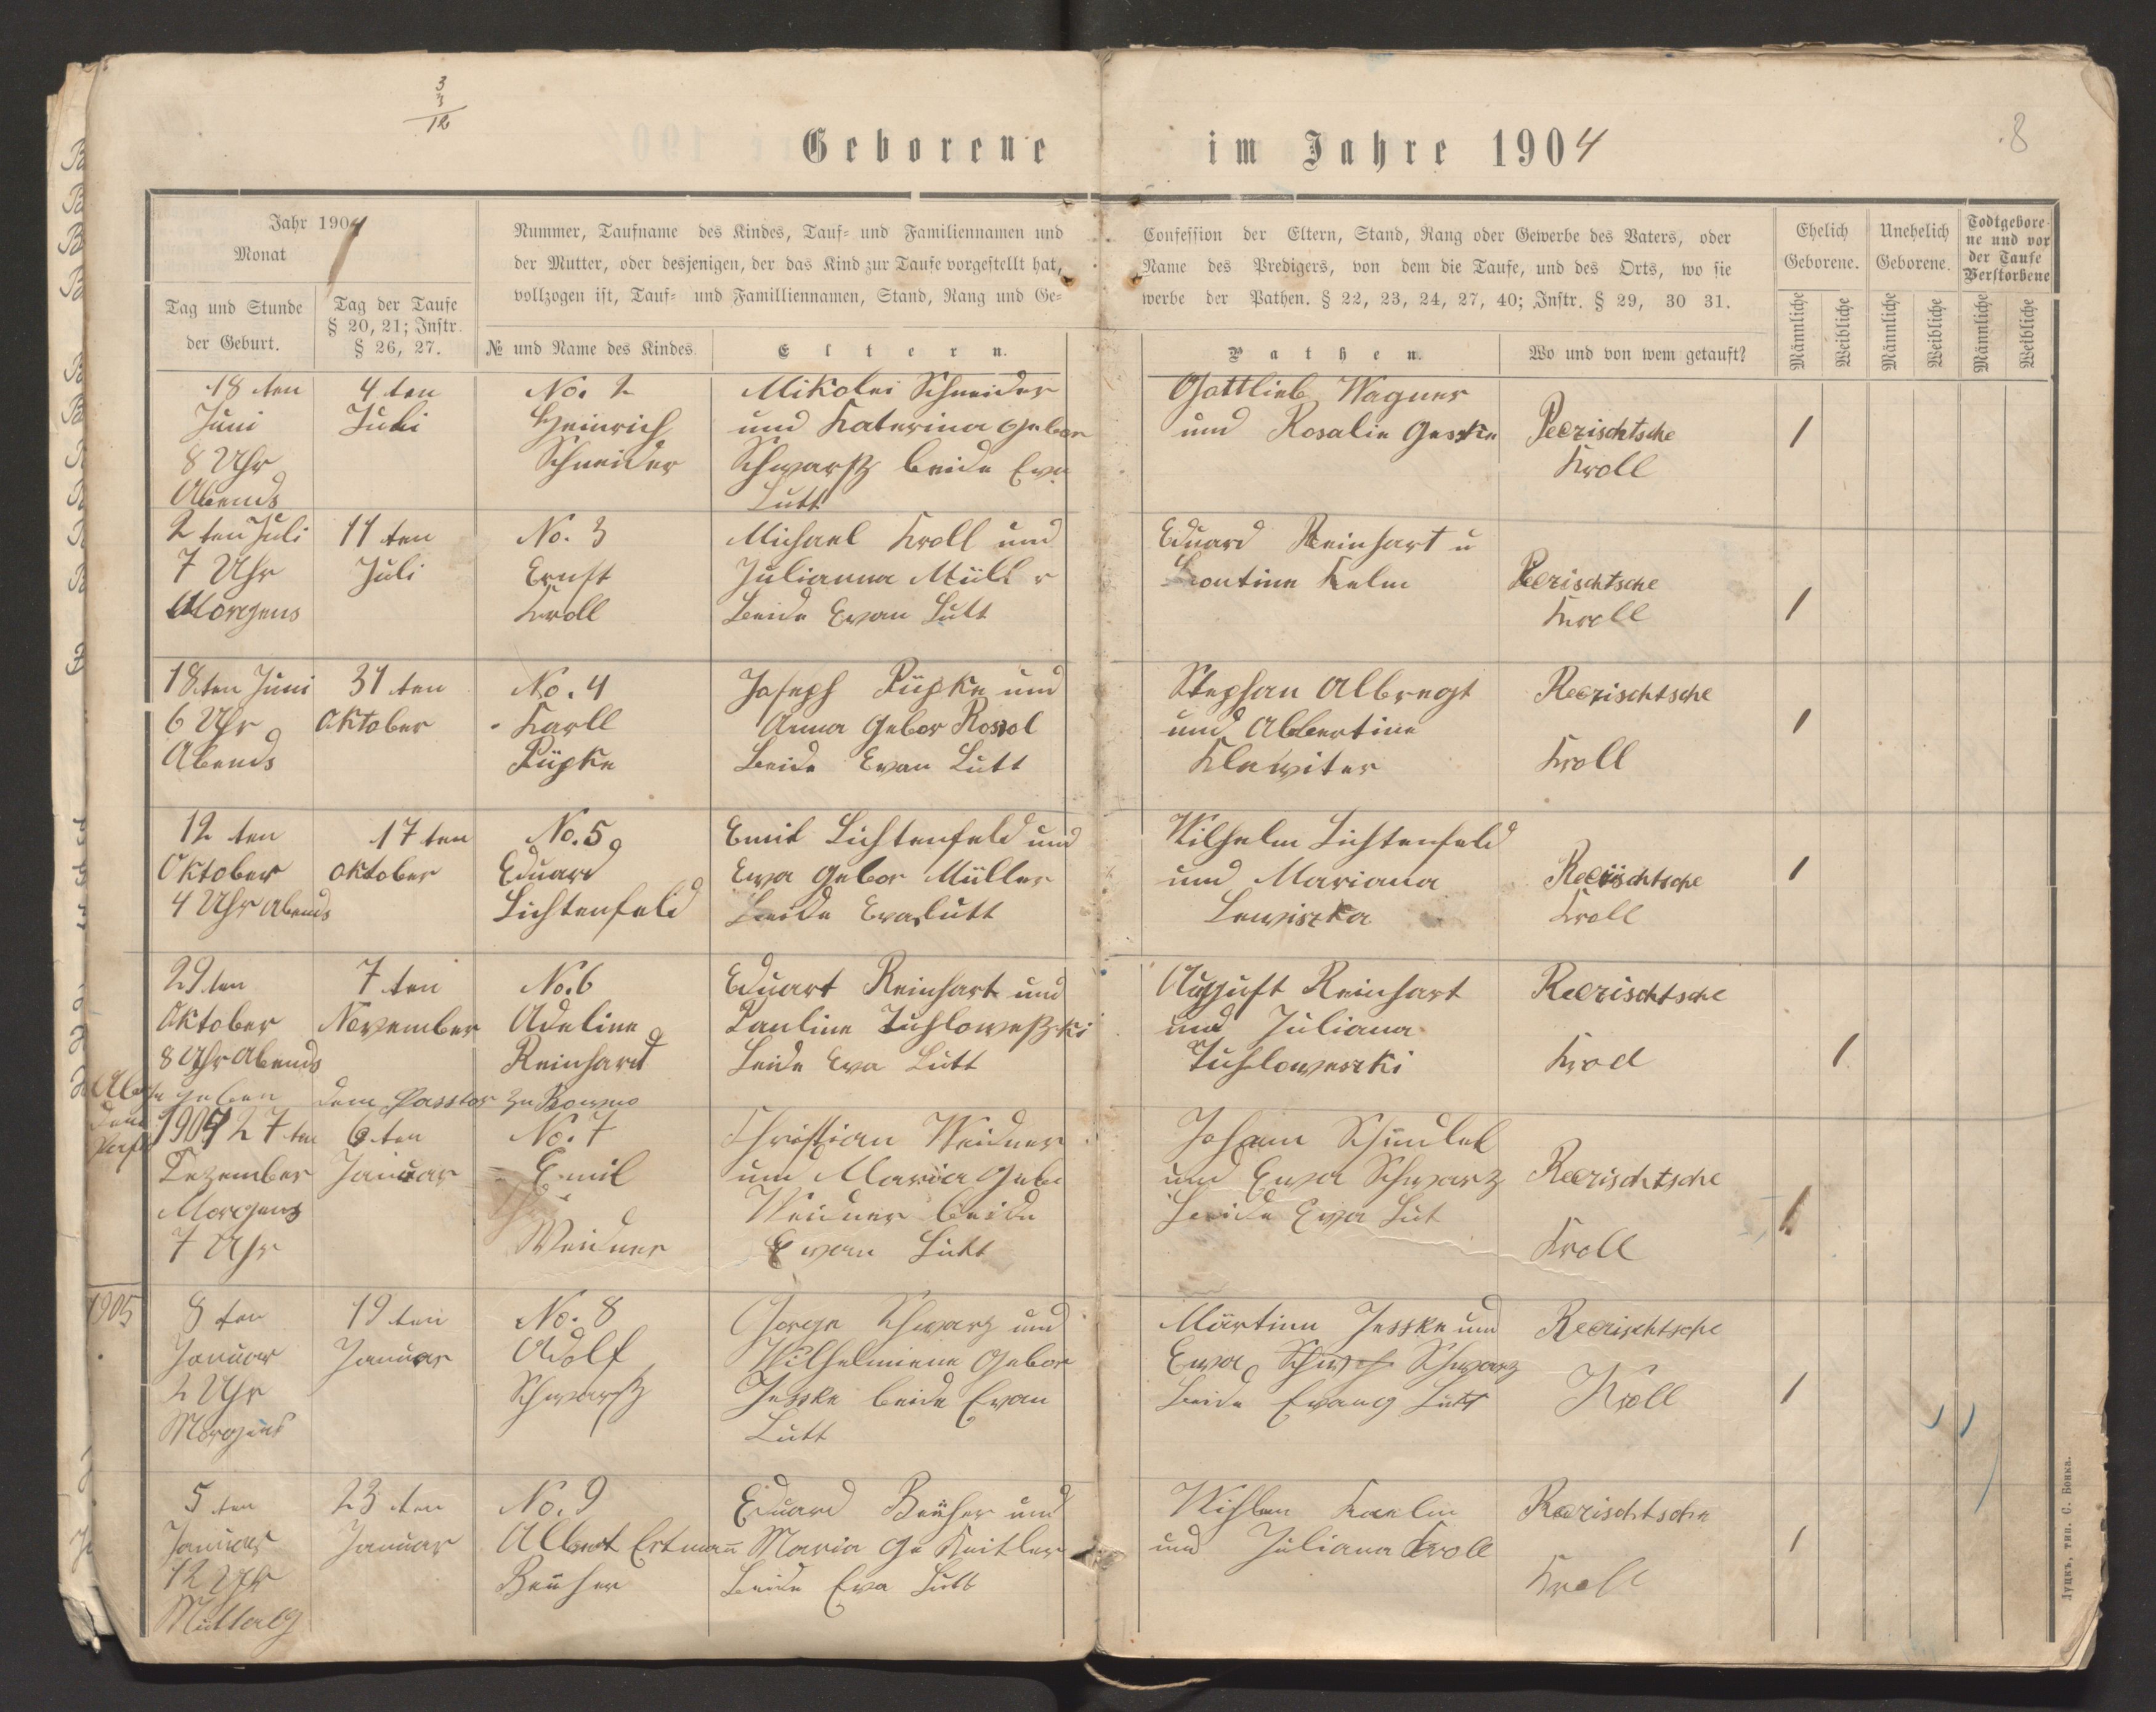 3
3
12
Geborene im Jahre 1904
8
Jahr 1904
Monat
Tag und Stunde
der Geburt.
Tag der Taufe
§ 20, 21; Instr.
§ 26, 27.
Nummer, Taufname des Kindes, Tauf= und Familiennamen und
der Mutter, oder desjenigen, der das Kind zur Taufe vorgestellt hat,
vollzogen ist, Tauf= und Familliennamen, Stand, Rang und Ge=
№ und Name des Kindes.
Eltern.
Confession der Eltern, Stand, Rang oder Gewerbe des Vaters, oder
Name des Predigers, von dem die Taufe, und des Orts, wo sie
werbe der Pathen. § 22, 23, 24, 27, 40; Instr. § 29, 30 31.
Pathen.
Wo und von wem getauft?
Ehelich
Geborene.
Unehelich
Geborene.
Todtgebore-
ne und vor
der Taufe
Verstorbene
Männliche
Weibliche
Männliche
Weibliche
Männliche
Weibliche
18 ten
Juni
8 Uhr
Abends
4 ten
Juli
No. 2
Heinrich
Schneider
Mikolei Schneider
und Katerina gebor
Schwartz beide Eva
Lutt
Gottlieb Wagner
und Rosalie Geske
Kroll
1
2 ten Juli
7 Uhr
Morgens
11 ten
Juli
No. 3
Ernst
Kroll
Michael Kroll und
Julianna Müll r
Beide Evan Lutt
Eduard Reinhart u
Leontine Kelm
Kroll
1
18 ten Juni
6 Uhr
Abends
31 ten
Oktober
No. 4
Karll
Püpke
Joseph Püpke und
Anna Gebor Rossol
Beide Evan Lutt
Stephan Albregt
und Albertine
Klawiter
Reezischtsche
Kroll
1
12 ten
Oktober
4 Uhr Abends
17 ten
oktober
No. 5
Eduard
Lichtenfeld
Emil Lichtenfeld und
Ewa Gebor Müller
Beide Eva Lutt
Wilhelm Lichtenfeld
und Mariana
Lewiszka
Kroll
1
29 ten
Oktober
8 Uhr Abends
7 ten
November
No. 6
Adeline
Reinhard
Eduart Reinhart und
Pauline Tuchloweßki
Beide Eva Lutt
August Reinhart
und Juliana
Tuchloweszki
Reezischtsche
Krol
1
dem Passtor zu Rowno
1904 27 ten
Dezember
Morgens
7 Uhr
6 ten
Januar
No. 7
Emil
Weidner
Christian Weidner
und Maria Gebo
Weidner beide
Evan Lutt
Johann Schindel
und Ewa Schwarz
beide Ewa Lut
Reezischtsche
Kroll
1
1905
8 ten
Januar
2 Uhr
Morgens
19 ten
Januar
No. 8
Adolf
Schwartz
George Schwarz und
Wilhelmiene Gebor
Jesske beide Evan
Lutt
Märtinn Jesske und
Ewa Schwarz
beide Evang Lutt
Reezischtsche
Kroll
1
5 ten
Januar
12 Uhr
Mittag
23 ten
Januar
No. 9
Albert Ertmann
Beuher
Eduard Beuher und
Maria Ge Keitler
Beide Eva Lutt
Kaelm
und Juliana Kroll
Reezischtsche
Kroll
1
Луцкъ, тип. С. Бонка.